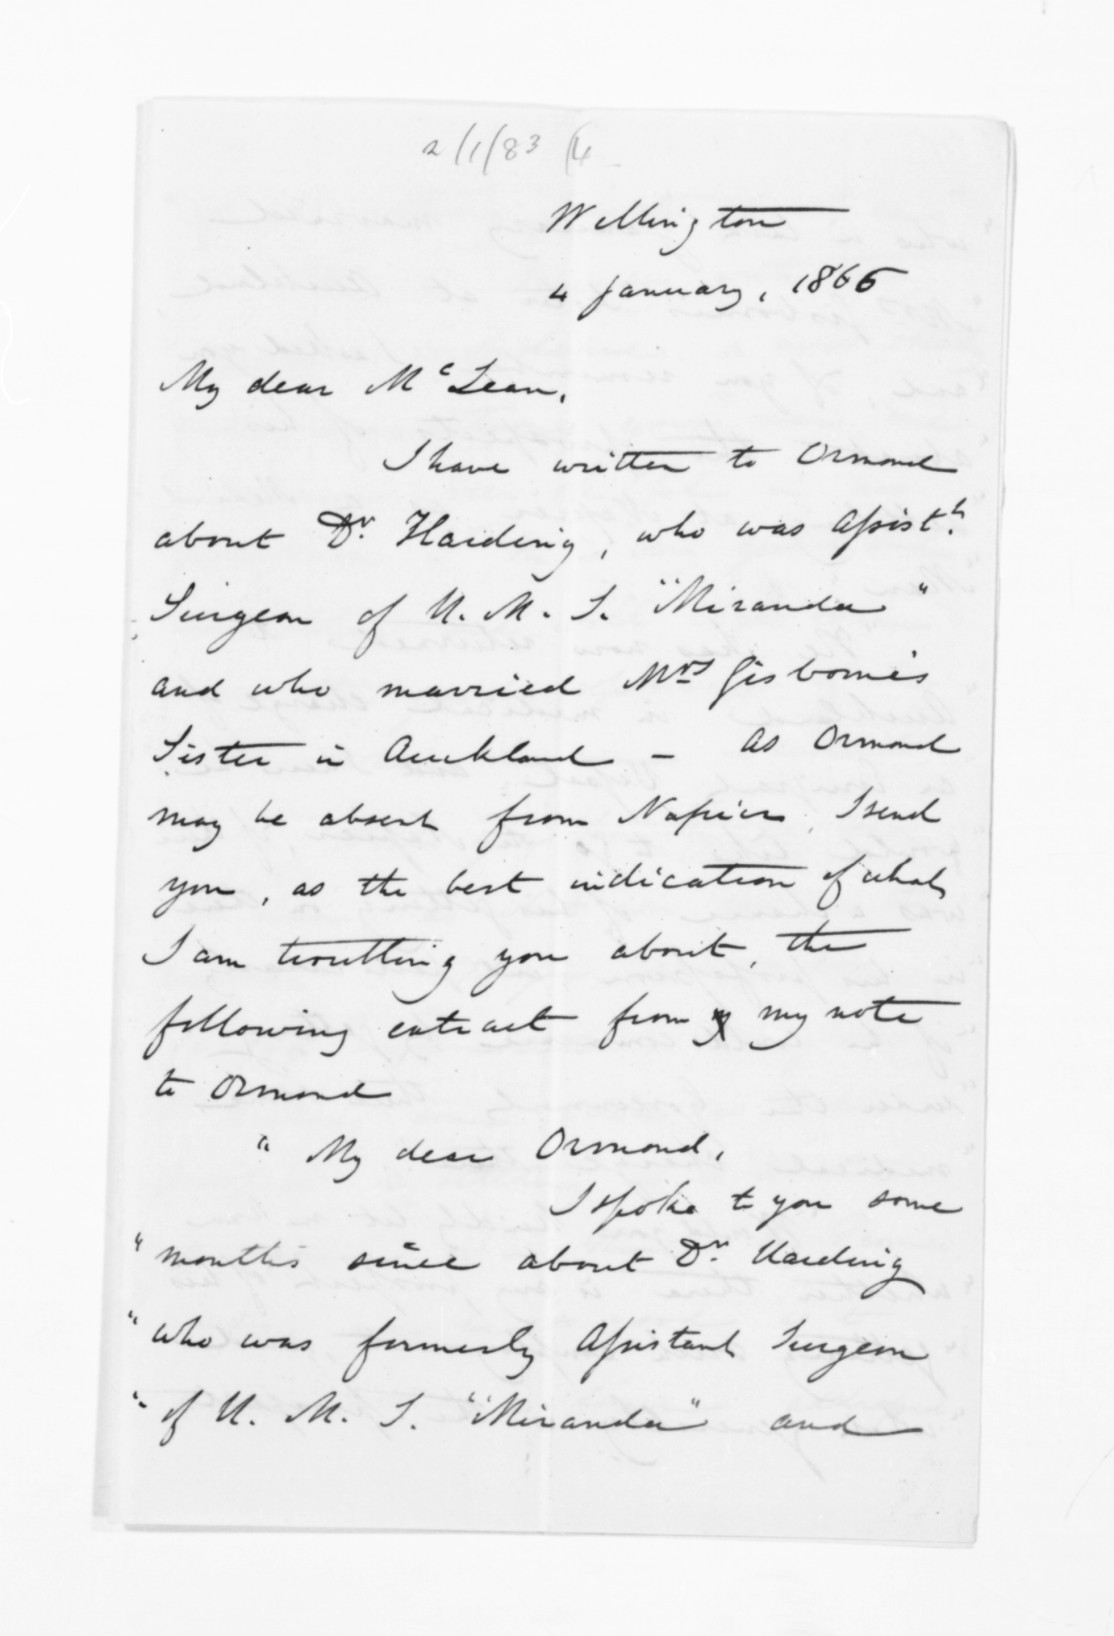 2/1/83 (4
Wellington
4 January, 1866
My dear McLean,
I have written to Ormond
about Dr. Harding, who was Assistt.
Surgeon of H. M. S. "Miranda"
and who married Mrs Gisborne's
Sister in Auckland — As Ormond
may be absent from Napier, I send
you, as the best indication of what
I am troubling you about, the
following extract from my note
to Ormond
" My dear Ormond,
I spoke to you some
" months since about Dr. Harding
" who was formerly Assistant Surgeon
" of H. M. S. "Miranda" and